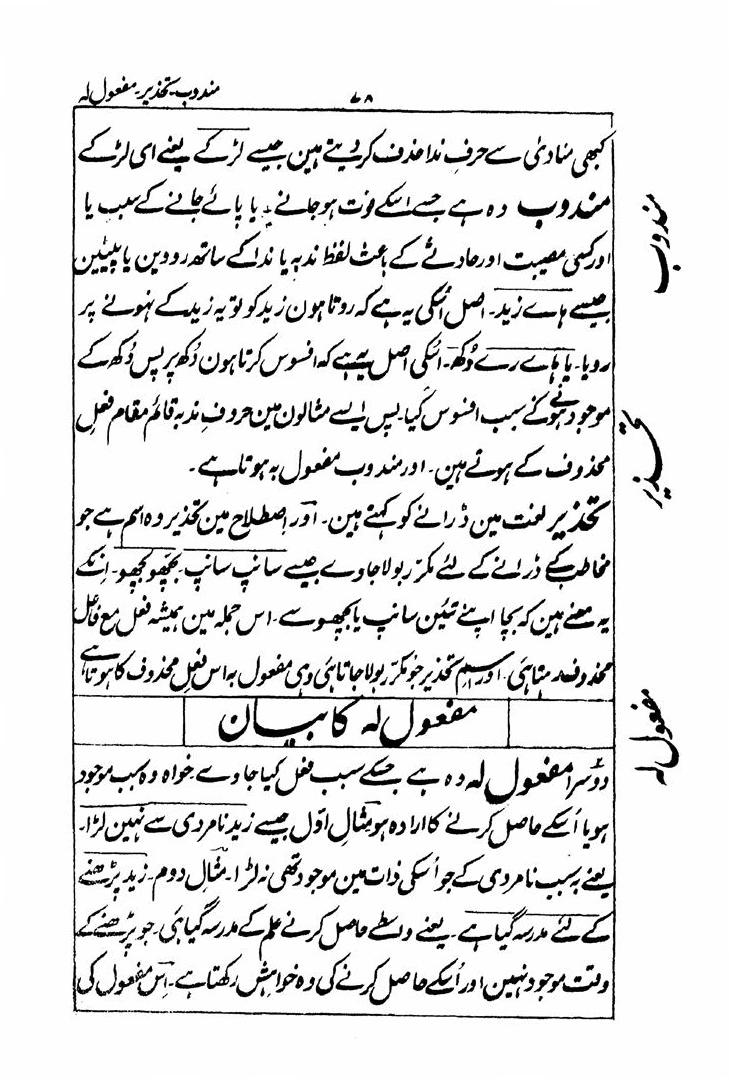 مندوب ۔ تحذیر ۔ مفعول لہ
۷۸
کبھی منادیٰ سے حرفِ ندا حذف کر دیتے ہین جیسے لڑکے یعنے ای لڑکے
مندوب وہ ہے جسے اسکے فوت ہو جانے یا پائے جانے کے سبب یا
اور کسی مصیبت اور حادثے کے باعث لفظ ندبہ یا ندا کے ساتھ رووین یا پیٹین
جیسے ہاے زید ۔ اصل اُسکی یہ ہے کہ روتا ہون زید کو تو یہ زید کے نہونے پر
رویا ۔ یا ہاے رے دُکھ ۔ اُسکی اصل یہ ہے کہ افسوس کرتا ہون دُکھ پر پس دُکھ کے
موجود ہونے کے سبب افسوس کیا ۔ پس ایسے مثالون مین حروفِ ندبہ قائم مقام فعل
محذوف کے ہوتے ہین ۔ اور مندوب مفعول بہ ہوتا ہے ۔
تحذیر لغت مین ڈرانے کو کہتے ہین ۔ اور اصطلاح مین تحذیر وہ اسم ہے جو
مخاطب کے ڈرانے کے لئے مکرّر بولا جاوے جیسے سانپ سانپ ۔ بچھو بچھو ۔ اِنکے
یہ معنے ہین کہ بچا اپنے تئین سانپ یا بچھو سے ۔ اس جملہ مین ہمیشہ فعل مع فاعل
محذوف رہتا ہی ۔ اور اسم تحذیر جو مکرّر بولا جاتا ہی وہی مفعول بہ اس فعل محذوف کا ہوتا ہے
مفعول لہ کا بیان
دوسرا مفعول لہ وہ ہے جسکے سبب فعل کیا جاوے خواہ وہ سبب موجود
ہو یا اُسکے حاصل کرنے کا ارادہ ہو مثال اوّل جیسے زید نامردی سے نہین لڑا ۔
یعنے بہ سبب نامردی کے جو اُسکی ذات مین موجود تھی نہ لڑا ۔ مثال دوم ۔ زید پڑھنے
کے لئے مدرسہ گیا ہے ۔ یعنے واسطے حاصل کرنے علم کے مدرسہ گیا ہی ۔ جو پڑھنے کے
وقت موجود نہین اور اُسکے حاصل کرنے کی وہ خواہش رکھتا ہے ۔ اِس مفعول کی
مندوب
تحذیر
مفعول لہ